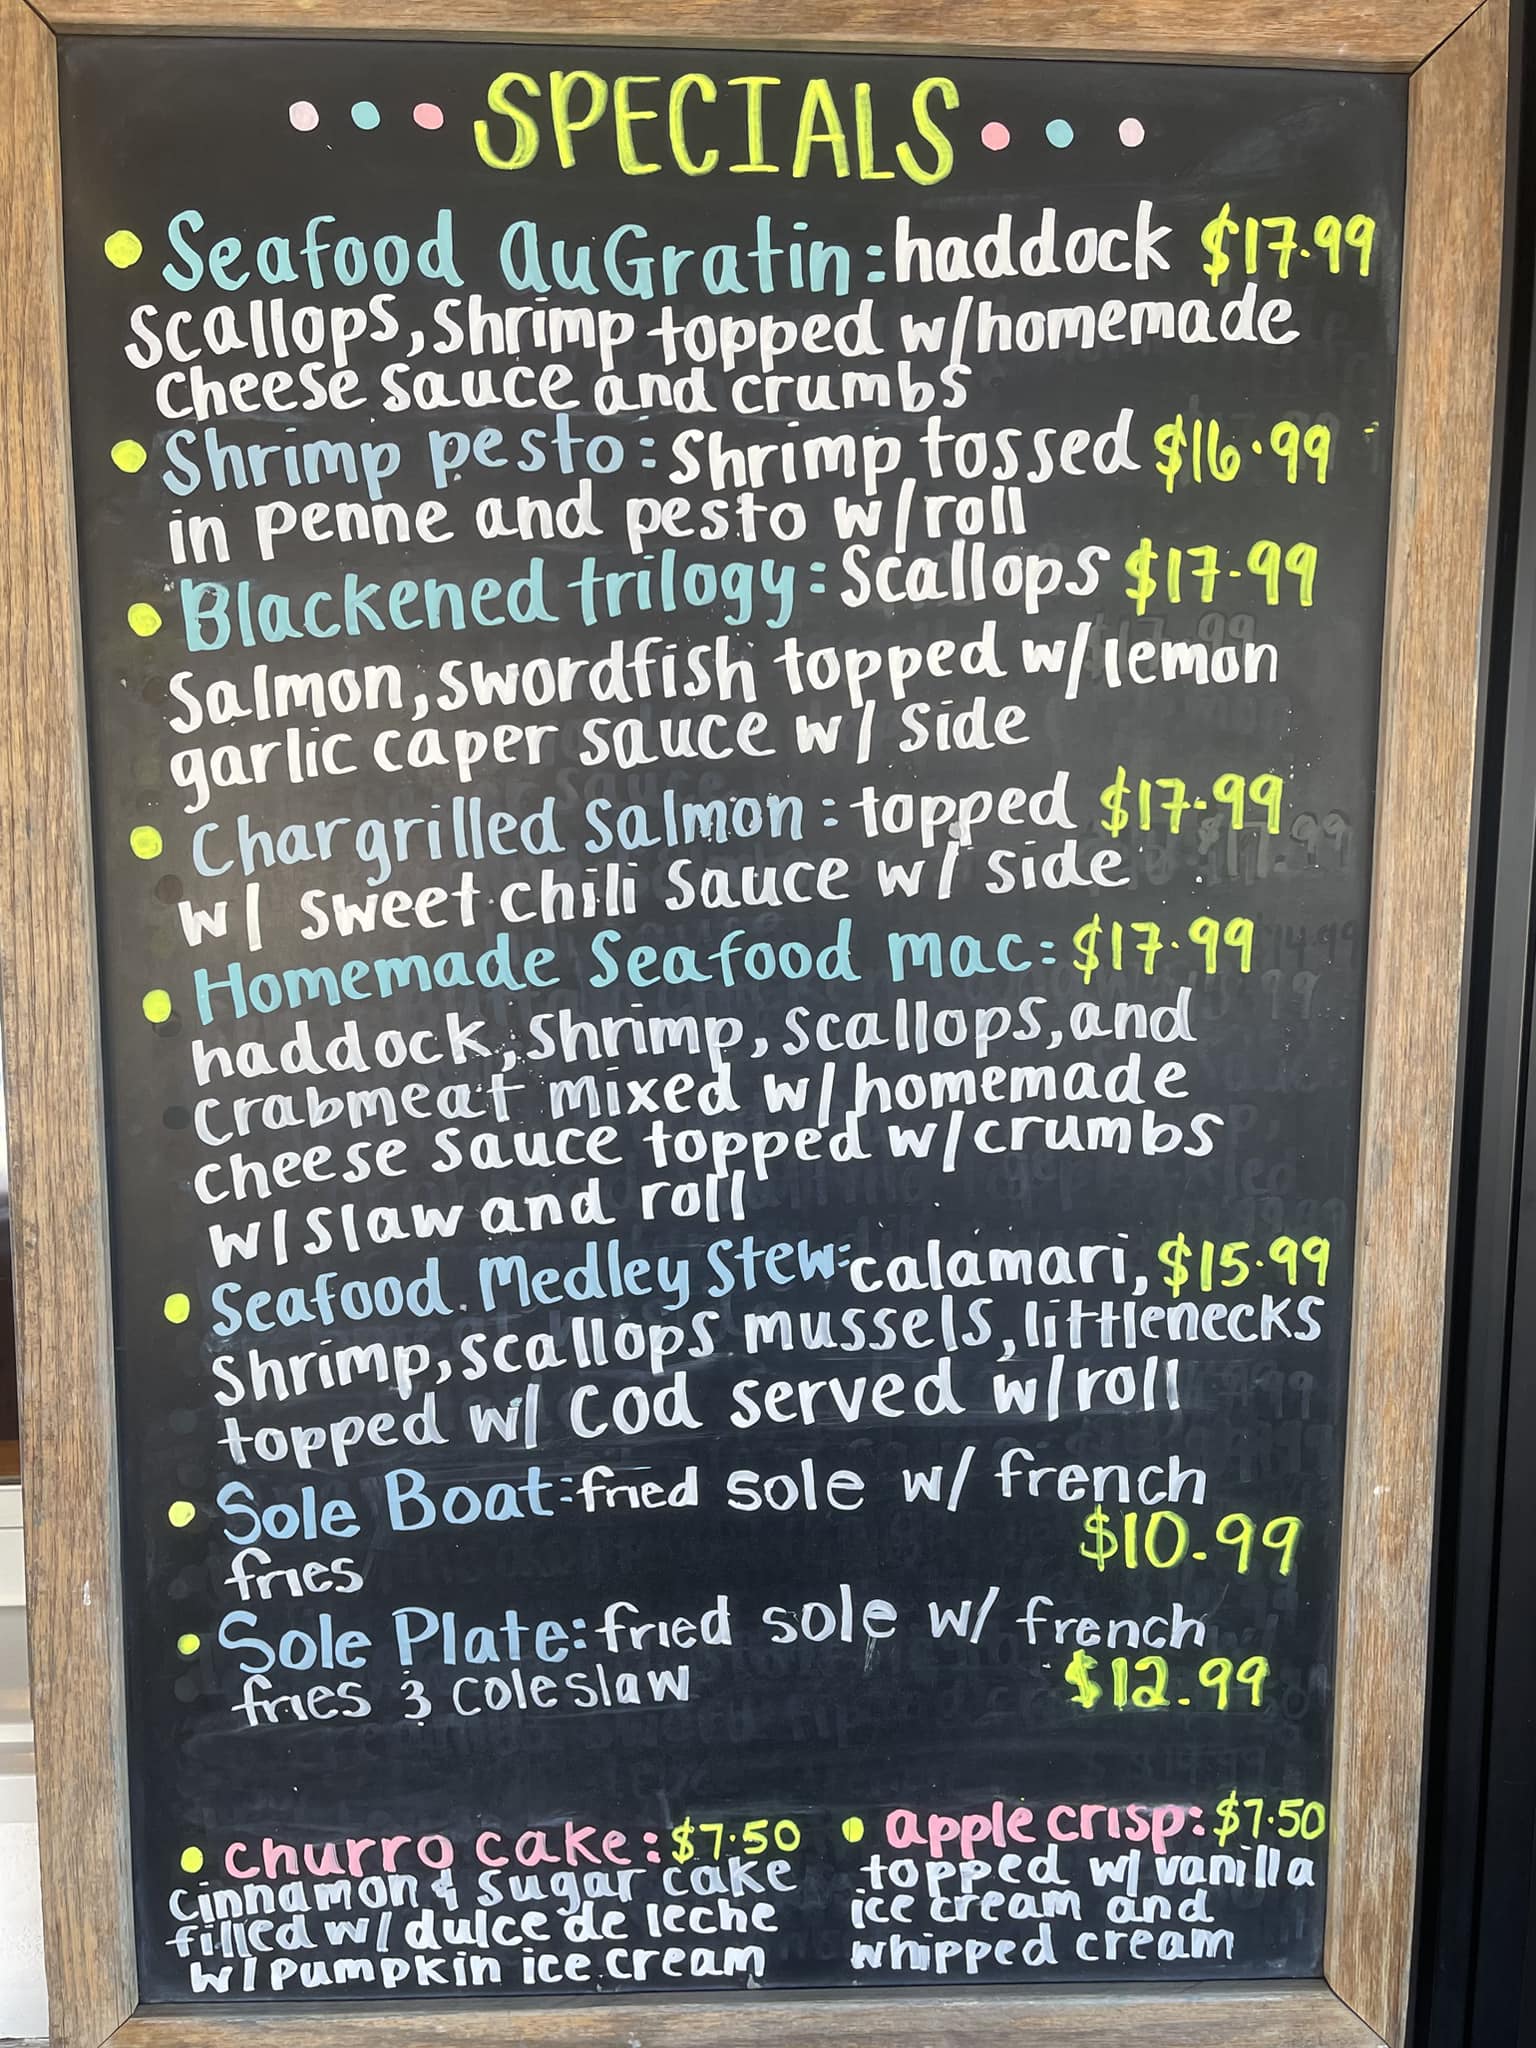 SPECIALS
Seafood AuGratin: haddock $17.99
Scallops, Shrimp topped w/homemade
Cheese Sauce and crumbs
Shrimp pesto: Shrimp tossed $16.99
in penne and pesto w/roll
Blackened trilogy: Scallops $17.99
Salmon, swordfish topped w/lemon
garlic caper sauce w/ side
Chargrilled Salmon: topped $17.99
w/ sweet chili sauce w/ side
Homemade Seafood mac: $17.99
haddock, shrimp, scallops, and
Crabmeat mixed w/homemade
cheese sauce topped w/crumbs
w/slaw and roll
Seafood Medley Stew: calamari, $15.99
Shrimp, scallops mussels, littlenecks
topped w/ cod served w/roll
Sole Boat: fried sole w/ french
fries $10.99
Sole Plate: fried sole w/ french
fries & coleslaw $12.99
churro cake: $7.50
cinnamon & sugar cake
filled w/ dulce de leche
w/ pumpkin ice cream
apple crisp: $7.50
topped w/ vanilla
ice cream and
whipped cream